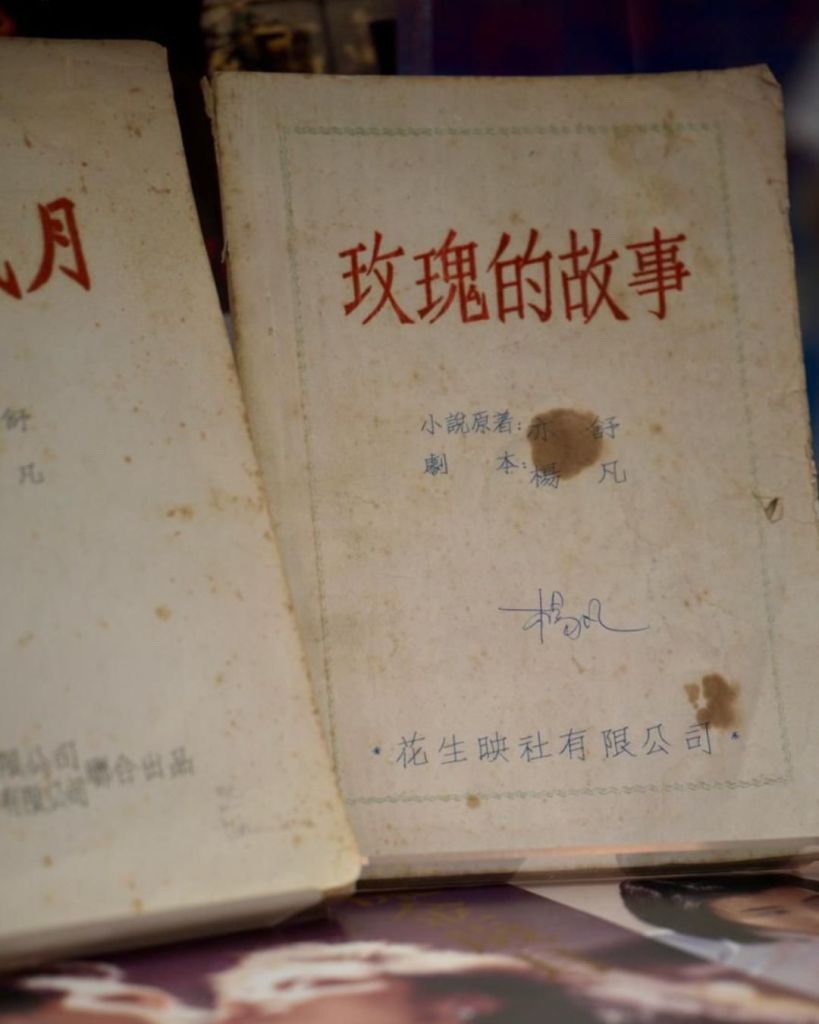 月
舒
凡
限公司
有限公司
聯合出品
玫瑰的故事
小說原著:亦 舒
劇 本:楊 凡
楊凡
*花生映社有限公司*